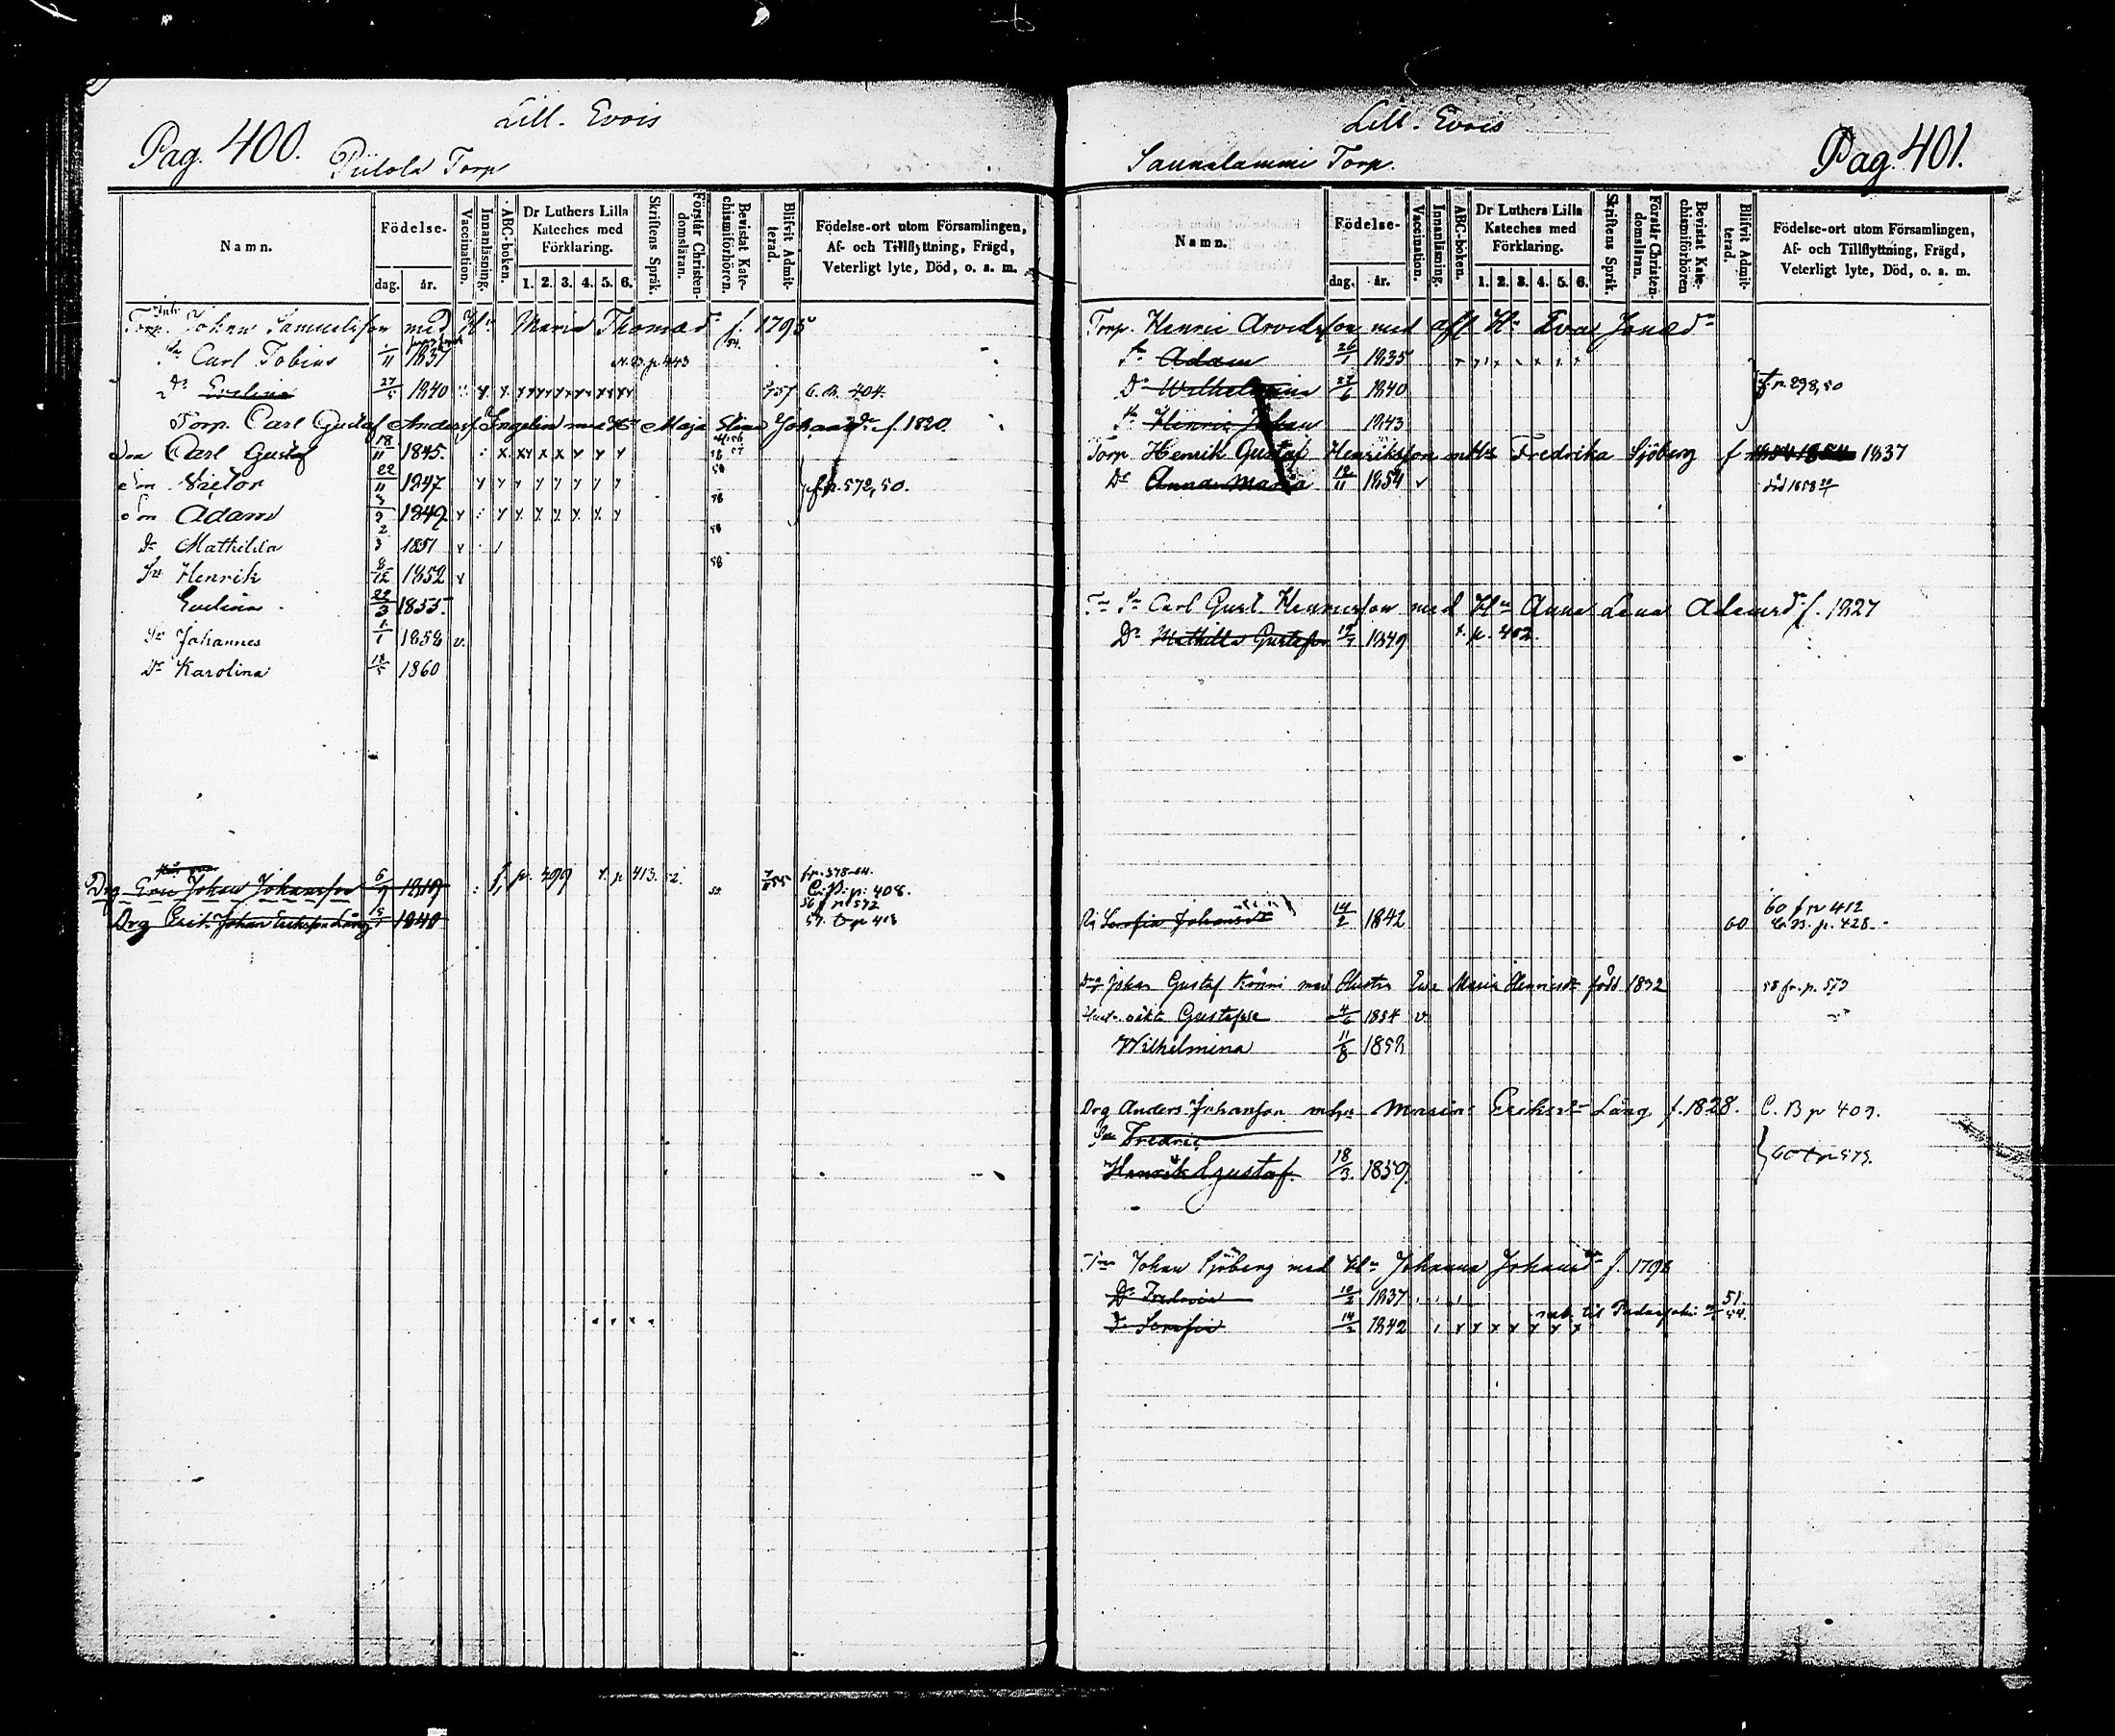 Lill. Evois
Pag. 400.
Piilola Torp
Namn.
Födelse-
dag.
år.
Vaccination.
Innanläsning.
ABC-boken.
Dr Luthers Lilla Kateches med Förklaring.
1. 2. 3. 4. 5. 6.
Skriftens Språk.
Förstår Christendomsläran.
Bevistat Katechismiförhören.
Blifvit Admitterad.
Födelse-ort utom Församlingen, Af- och Tillflyttning, Frägd, Veterligt lyte, Död, o. s. m.
Torp. Johan Samuelsson med Hu Maria Thomaed. f. 1795
Sn Carl Tobias 1/11 1837 N.B. p. 443
Dr Evelina 27/5 1840 57 C.B. 404.
Torp. Carl Gustaf Anderss. Ingelin med Hu Maja Stina Johansdr f. 1820.
Son Carl Gustaf 18/11 1845.
Son Victor 22/11 1847 f.p. 572, 50.
Son Adam 3/9 1849
Dr Mathilda 2/3 1851
Sn Henrik 8/12 1852
Evelina 22/3 1855.
Sn Johannes 1/1 1858 v.
Dr Karolina 18/5 1860
Drg Eric Johan Johansson 5/9 1819 f. p. 399 t. p. 413. 7/11 55 fr. 378-54.
C.B. p. 408.
56 f p 572
Drg Erik Johan Eriksson Lång 15/1 1840 57. t p 413
Lill. Evois
Saunalammi Torp.
Pag. 401.
Namn.
Födelse-
dag.
år.
Vaccination.
Innanläsning.
ABC-boken.
Dr Luthers Lilla Kateches med Förklaring.
1. 2. 3. 4. 5. 6.
Skriftens Språk.
Förstår Christendomsläran.
Bevistat Katechismiförhören
Blifvit Admitterad.
Födelse-ort utom Församlingen, Af- och Tillflyttning, Frägd, Veterligt lyte, Död, o. s. m.
Torp. Henric Arvidsson med afl. Hu Eva Jonaed.
Sn Adam 26/1 1835
Dr Wilhelmina 27/6 1840 t. p. 298, 50
Sn Henric Johan 1843
Torp Henrik Gustaf Henriksson m Hu Fredrika Sjöberg f 1837
Dr Anna Maria 12/11 1854 död 1858
Sn Carl Gust. Henricsson med Hu Anna Lena Adamsdr f. 1827
Dr Mathilda Gustafsdr 1849 t. p. 402.
Pi Serafia Johansdr 14/2 1842 60 60 f p 412
C.B. p. 428.
Johan Gustaf Könni med Hustru Eva Maria Henriksdr född 1832 58 fr. p. 573
Hust. oäkta Gustafva 4/6 1854 v
Wilhelmina 11/8 1858
Drg Anders Johansson m hu Maria Eriksdr Lång f. 1828. C. B p 409.
Sn Fredric
Henrik Gustaf 18/3 1859. 60 t p 573.
Johan Sjöberg med Hu Johanna Johansdr f. 1798
Dr Fredrica 10/2 1837 51.
Dr Serafia 14/2 1842 til Padasjoki 54.